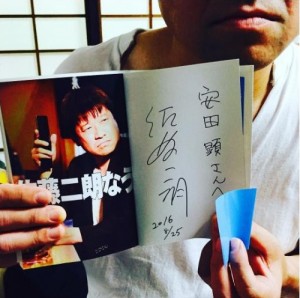 藤二朗なう
安田顕さんへ
佐藤二朗
2016
8/25